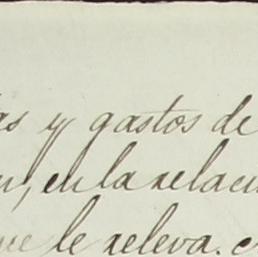 as y gastos de
n, en la relaci
ue le releva.